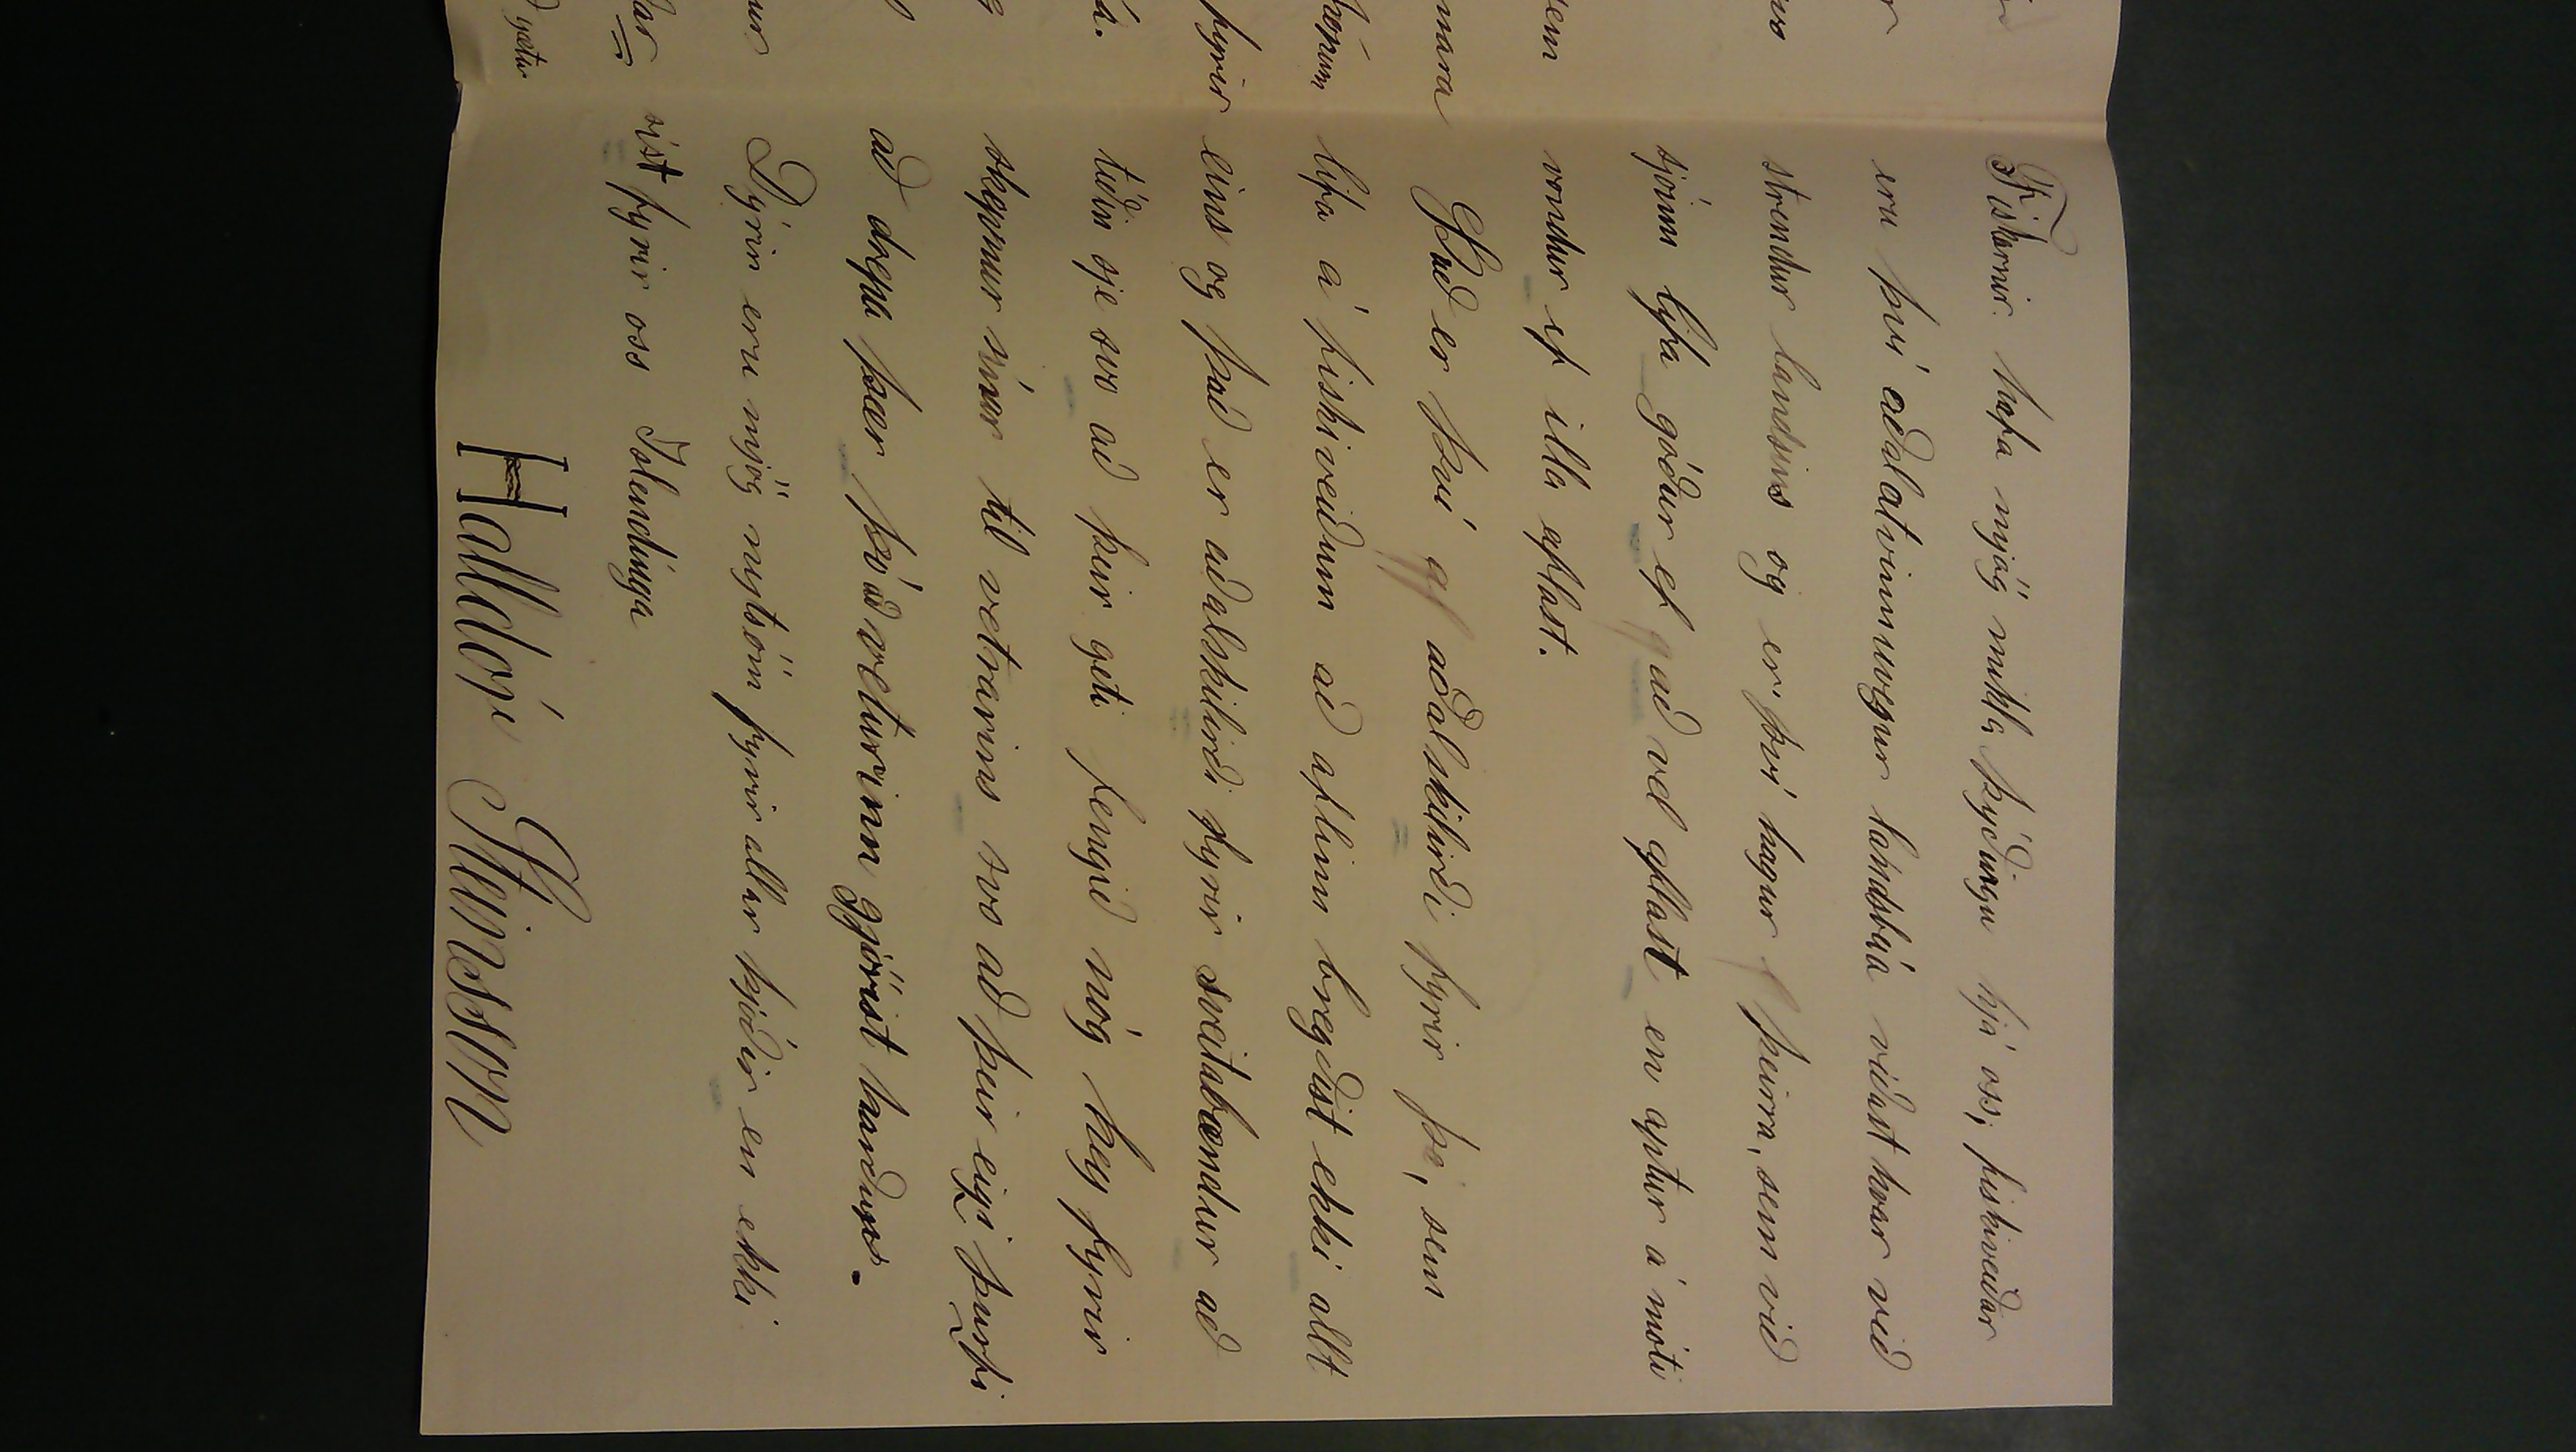 Fiskarnir hafa mjög mikla þýðingu hjá oss; fiskiveiðar
eru því aðalatvinnuvegur landsbúa víðast hvar við
strendur landsins og er því hagur þeirra, sem við
sjóinn lifa góður ef að vel aflast en aptur á móti
vondur ef illa aflast.
Það er því aðalskilirði fyrir þá, sem
lifa á fiskiveiðum að aflinn bregðist ekki allt
eins og það er aðalskilirði fyrir sveitabændur að
tíðin sje svo að þeir geti fengið nóg hey fyrir
skepnur sínar til vetrarins svo að þeir eigi þurfi
að drepa þær þó að veturinn gjörist harður.
Dýrin eru mjög nytsöm fyrir allar þjóðir en ekki
síst fyrir oss Íslendinga
Halldór Steinsson
mara
fyrir
sem